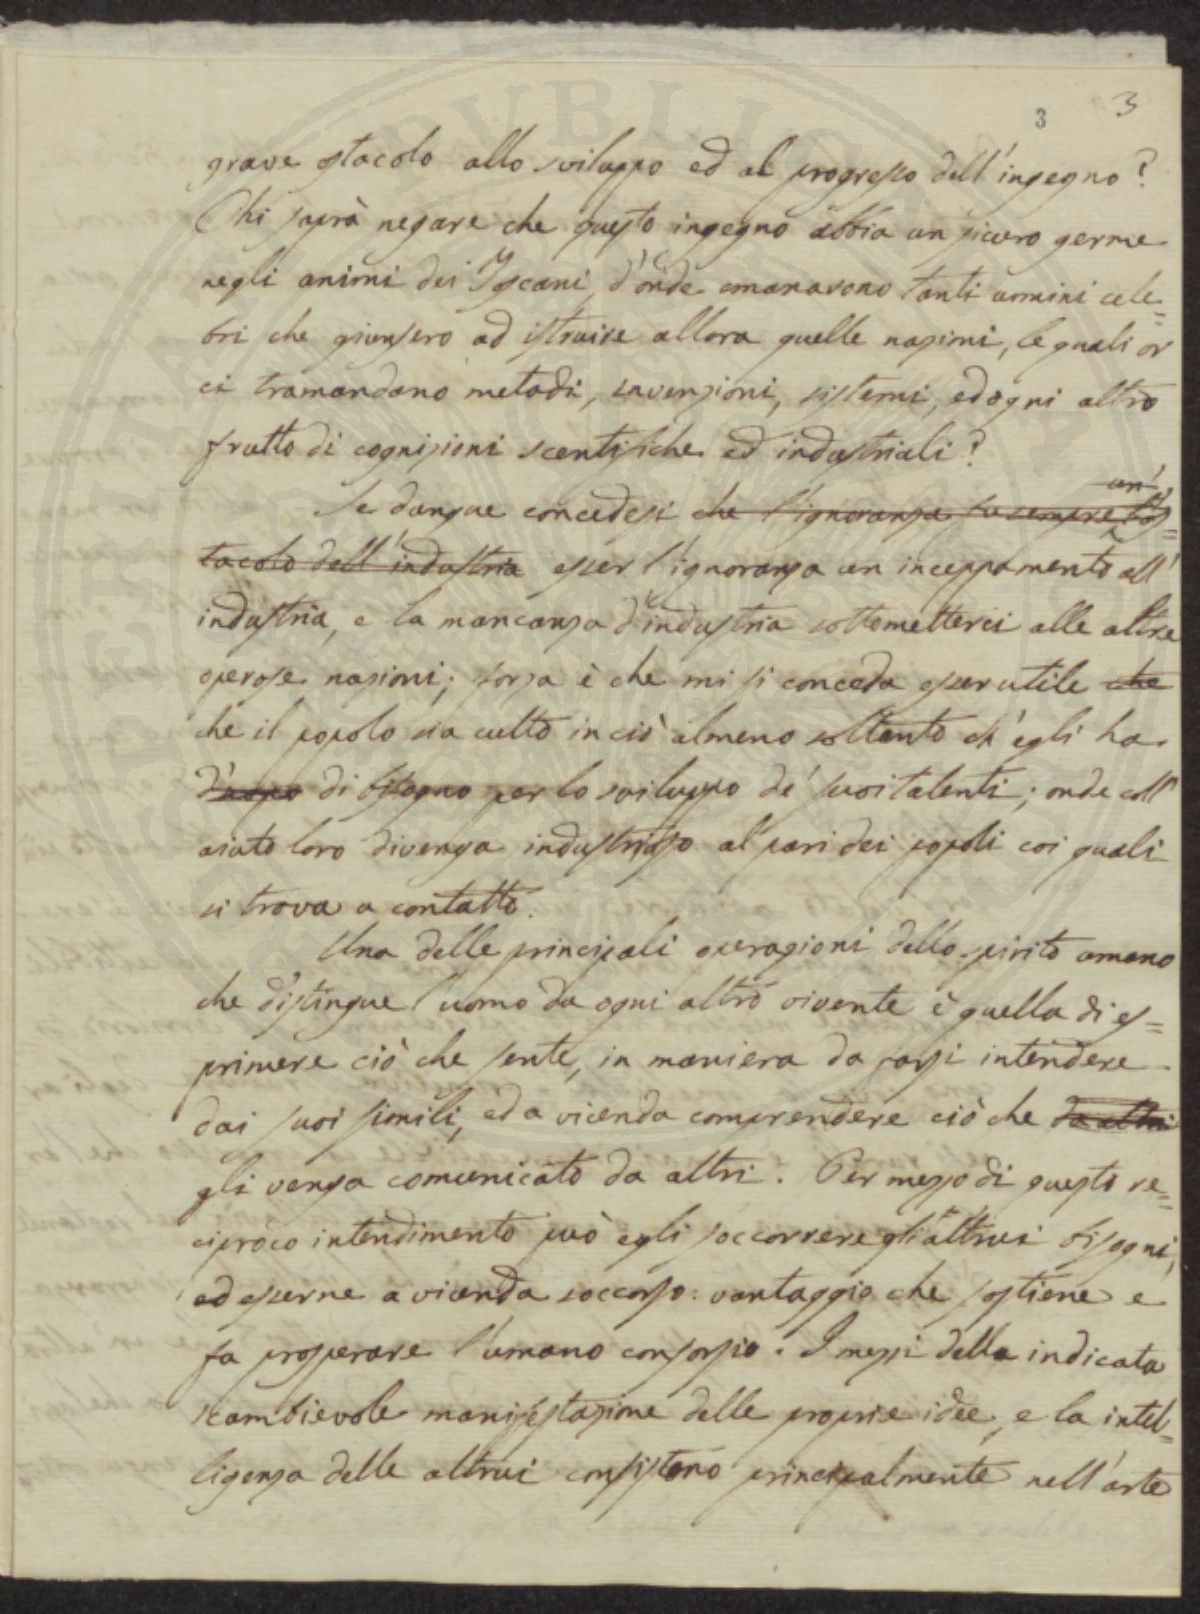 3 3
grave ostacolo allo sviluppo ed al progresso dell'ingegno?
Chi saprà negare che questo ingegno abbia un sicuro germe
negli animi dei Toscani, d'onde emanarono tanti uomini cele=
bri che giunsero ad istruire allora quelle nazioni, le quali or
ci tramandano metodi, invenzioni, sistemi, ed ogni altro
frutto di cognizioni scentifiche ed industriali?
un'
Se dunque concedesi che l'ignoranza fu sempre l'os=
tacolo dell'industria esser l'ignoranza un inceppamento all'
industria, e la mancanza d'industria sottometterci alle altre
operose nazioni; forza è che mi si conceda esser utile che
che il popolo sia culto in ciò almeno soltanto ch'egli ha
d'uopo di bisogno per lo sviluppo de' suoi talenti; onde coll'
aiuto loro divenga industrioso al pari dei popoli coi quali
si trova a contatto.
Una delle principali operazioni dello spirito umano
che distingue l'uomo da ogni altro vivente è quella di es=
primere ciò che sente, in maniera da farsi intendere
dai suoi simili, ed a vicenda comprendere ciò che da altri
gli venga comunicato da altri. Per mezzo di questo re=
ciproco intendimento può egli soccorrere gli altrui bisogni,
ed esserne a vicenda soccorso: vantaggio che sostiene e
fa prosperare l'umano consorzio. I mezzi della indicata
scambievole manifestazione delle proprie idee, e la intel=
ligenza delle altrui consistono principalmente nell'arte